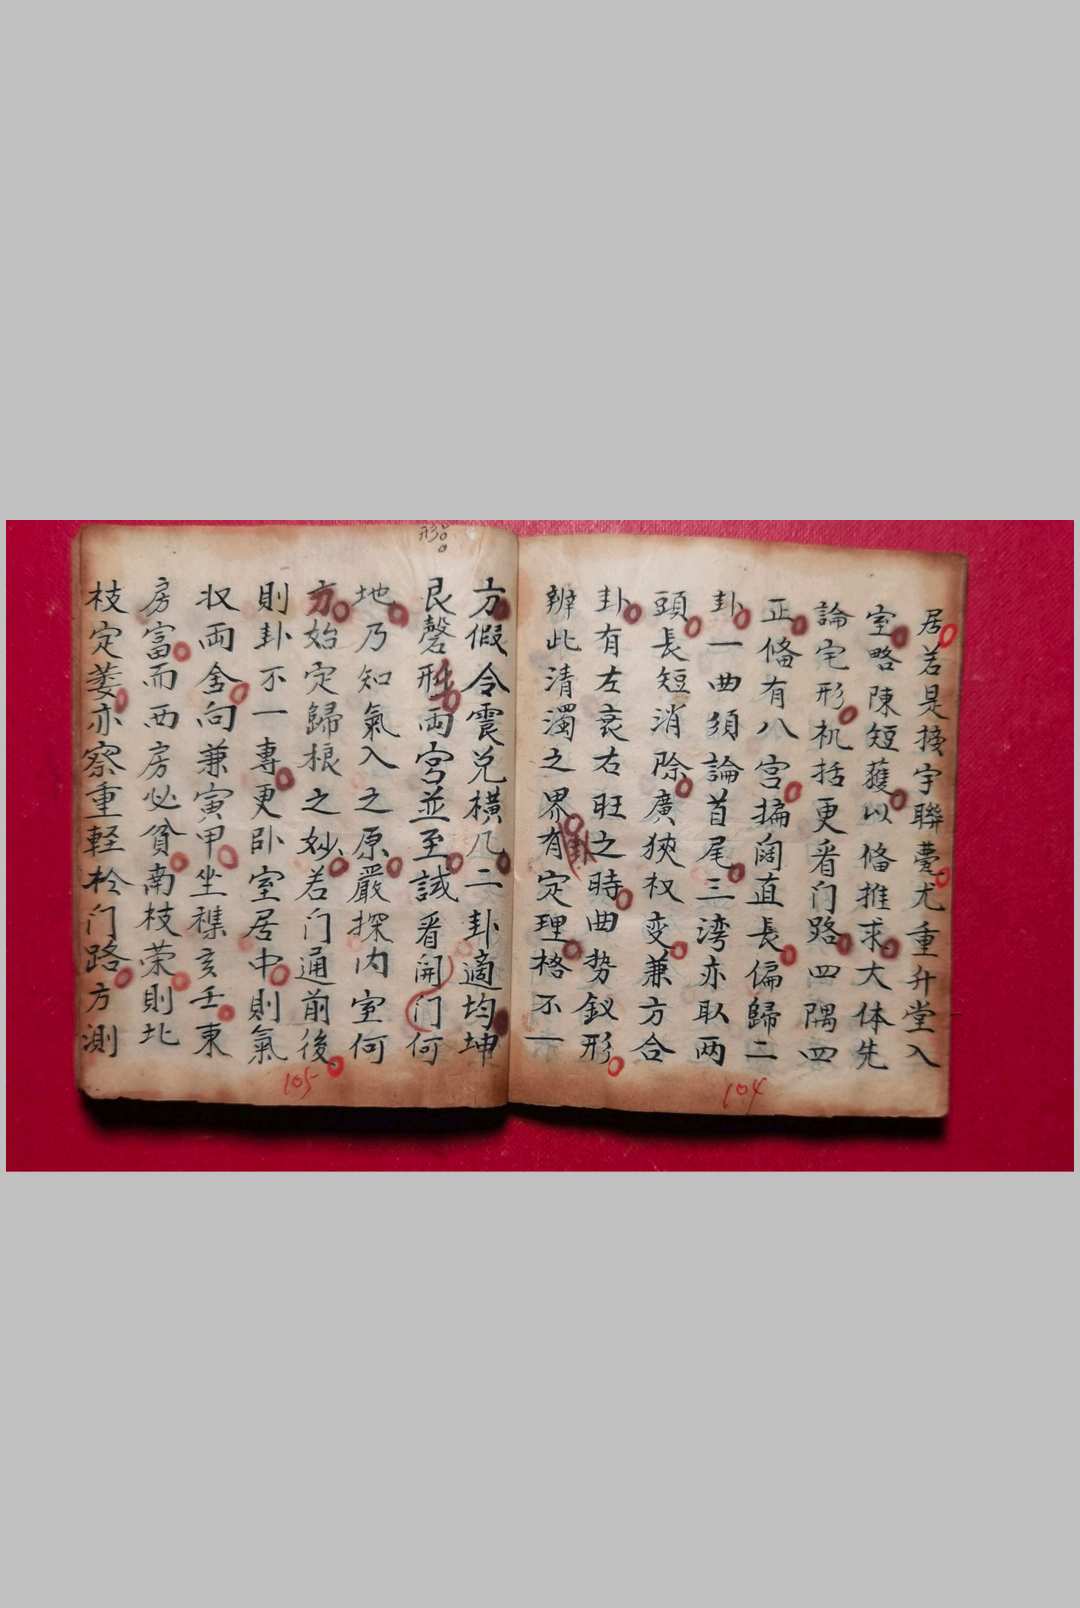 居若是接宇聯甍尤重升堂入
室略陳短䕶以俻推求大体先
論宅形机括更看门路四隅四
正俻有八宫搧阔直長偏歸二
卦一曲须論首尾三湾亦取两
頭長短消除廣狹权变兼方合
卦有左衰右旺之時曲势釵形
辨此清濁之界有定理格不一
方假令震兑横几二卦適均坤
艮磬形両宮並至誠看開门何
地乃知氣入之原嚴探内室何
方始定歸根之妙若门通前後
則卦不一專更卧室居中則氣
収両舍向兼寅甲坐襍亥壬東
房富而西房必貧南枝荣則北
枝定萎亦察重軽於门路方測
形
104
105